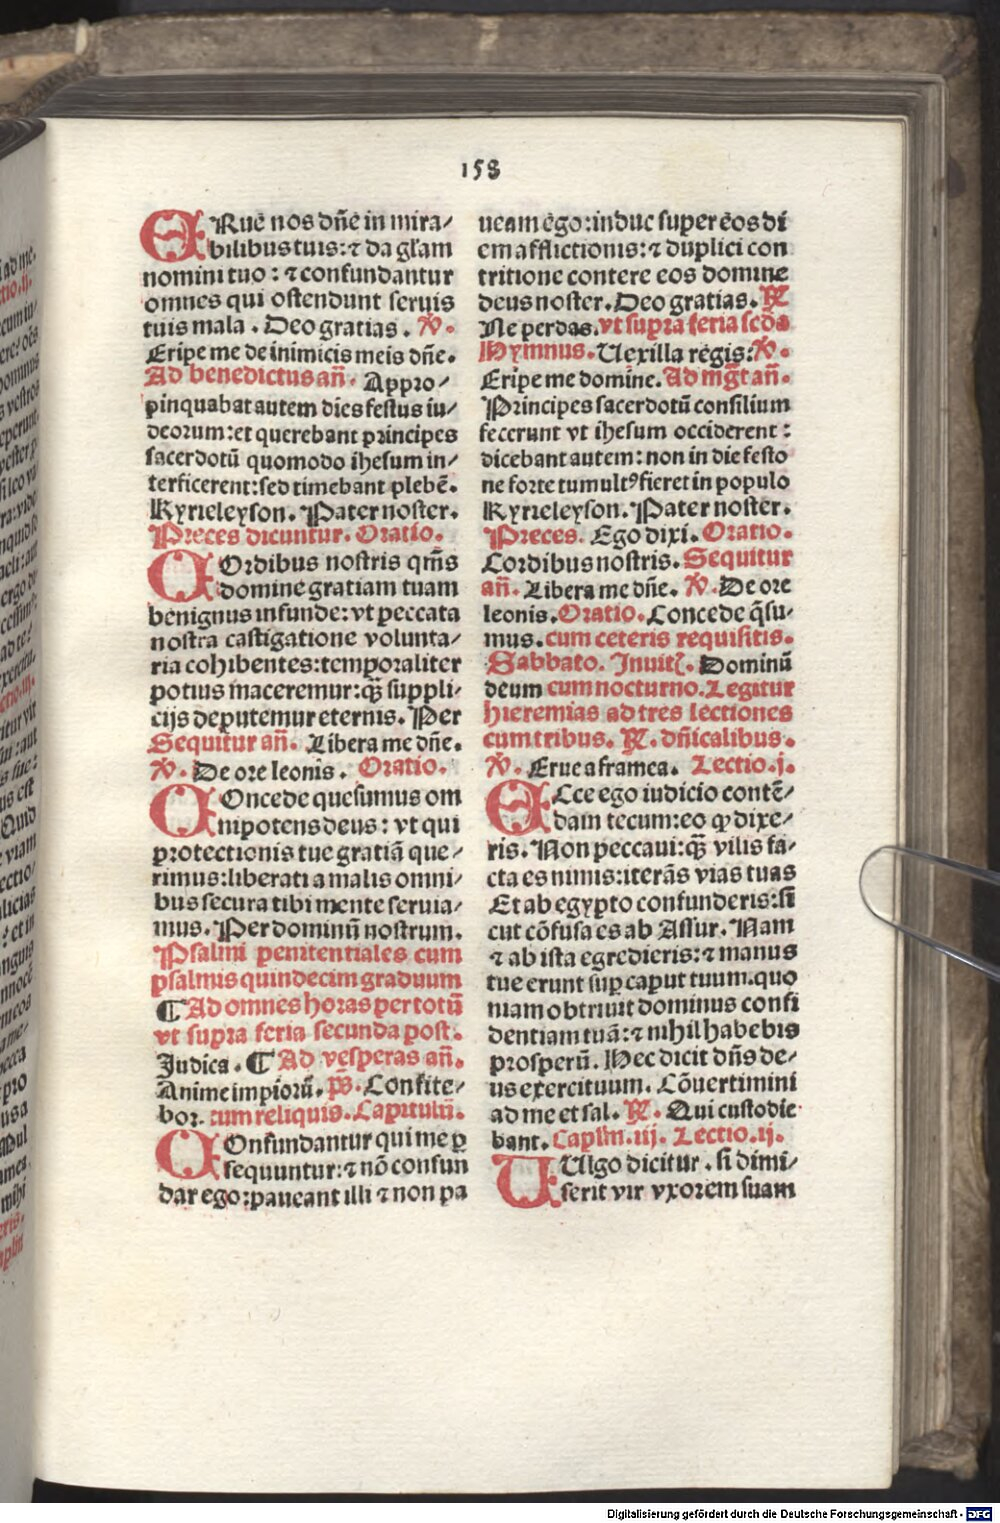 158
ERuē nos dn̄e in mira/
bilibus tuis: ⁊ da gl'am
nomini tuo: ⁊ confundantur
omnes qui ostendunt seruis
tuis mala. Deo gratias. ℣.
Eripe me de inimicis meis dn̄e.
Ad benedictus an̄. Appro/
pinquabat autem dies festus iu/
deorum: et querebant principes
sacerdotū quomodo ihesum in/
terficerent: sed timebant plebē.
Kyrieleyson. Pater noster.
Preces dicuntur. Oratio.
COrdibus nostris qm̄s
domine gratiam tuam
benignus infunde: vt peccata
nostra castigatione volunta/
ria cohibentes: temporaliter
potius maceremur: qȝ suppli/
cijs deputemur eternis. Per
Sequitur an̄. Libera me dn̄e.
℣. De ore leonis. Oratio.
COncede quesumus om
nipotens deus: vt qui
protectionis tue gratiā que/
rimus: liberati a malis omni/
bus secura tibi mente seruia/
mus. Per dominū nostrum.
Psalmi penitentiales cum
psalmis quindecim graduum
¶ Ad omnes horas per totū
vt supra feria secunda post.
Judica. ¶ Ad vesperas an̄.
Anime impiorū. ps̄. Confite/
bor. cum reliquis. Capitulū.
COnfundantur qui me ꝑ
sequuntur: ⁊ nō confun
dar ego: paueant illi ⁊ non pa
ueam ego: induc super eos di
em afflictionis: ⁊ duplici con
tritione contere eos domine
deus noster. Deo gratias. ℟
Ne perdas. vt supra feria scd̄a
Hymnus. Uexilla regis: ℣.
Eripe me domine. Ad mgt̄ an̄.
Principes sacerdotū consilium
fecerunt vt ihesum occiderent:
dicebant autem: non in die festo
ne forte tumultꝰ fieret in populo
Kyrieleyson. Pater noster.
Preces. Ego dixi. Oratio.
Cordibus nostris. Sequitur
an̄. Libera me dn̄e. ℣. De ore
leonis. Oratio. Concede q̄su/
mus. cum ceteris requisitis.
Sabbato. Inuitꝭ. Dominū
deum cum nocturno. Legitur
hieremias ad tres lectiones
cum tribus. ℟. dn̄icalibus.
℣. Erue a framea. Lectio. j.
ECce ego iudicio contē/
dam tecum: eo ꝙ dixe/
ris. Non peccaui: qȝ vilis fa/
cta es nimis: iterās vias tuas
Et ab egypto confunderis: si
cut cōfusa es ab Assur. Nam
⁊ ab ista egredieris: ⁊ manus
tue erunt suꝑ caput tuum. quo
niam obtriuit dominus confi
dentiam tuā: ⁊ nihil habebis
prosperū. Hec dicit dn̄s de/
us exercituum. Cōuertimini
ad me et sal. ℟. Qui custodie
bant. Caplm̄. iij. Lectio. ij.
UUlgo dicitur. si dimi/
serit vir vxorem suam
Digitalisierung gefördert durch die Deutsche Forschungsgemeinschaft - DFG